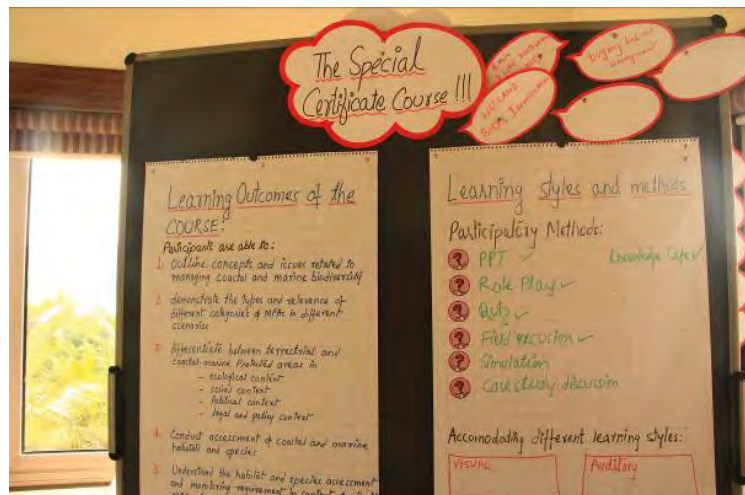 The Special
Certificate Course !!!
WETLAND
Dugong habitat
management
Learning Outcomes of the
COURSE:
Participants are able to:
1. Outline concepts and issues related to
managing coastal and marine biodiversity
2. demonstrate the types and relevance of
different categories of MPAs in different
scenarios
3. differentiate between terrestrial and
coastal-marine Protected areas in
- ecological context
- social context
- Political context
- legal and policy context
4. Conduct assessment of coastal and marine
habitats and species
5. Understand the habitat and species assessment
and monitoring requirement in context of
Learning styles and methods
Participatory Methods:
? PPT ✓ Knowledge Cafe ✓
? Role Play ✓
? Quiz ✓
? Field excusion ✓
? Simulation
? Case study discussion
Accomodating different learning styles:
VISUAL
Auditory